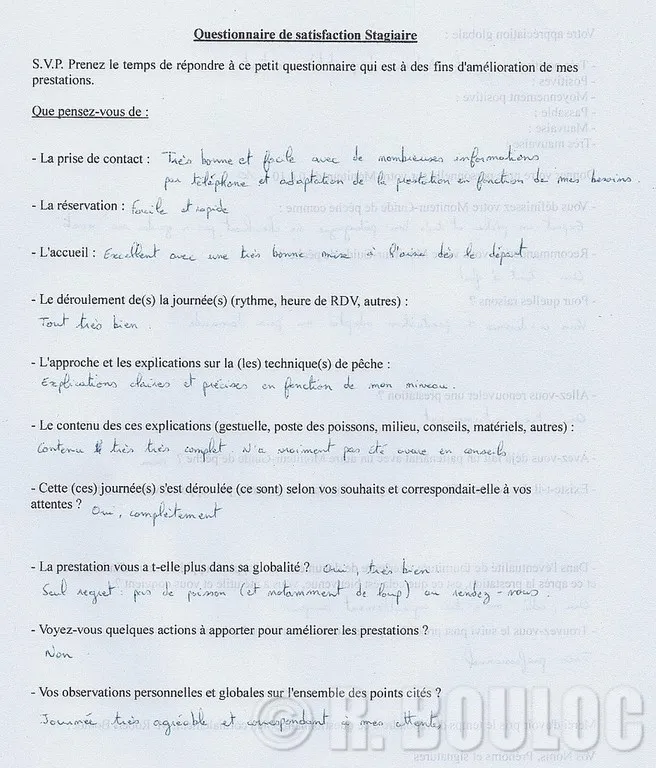 Questionnaire de satisfaction Stagiaire
S.V.P. Prenez le temps de répondre à ce petit questionnaire qui est à des fins d'amélioration de mes
prestations.
Que pensez-vous de :
- La prise de contact : Très bonne et facile avec de nombreuses informations
par téléphone et adaptation de la prestation en fonction de mes besoins.
- La réservation : facile et rapide
- L'accueil : Excellent avec une très bonne mise à l'aise dès le départ
- Le déroulement de(s) la journée(s) (rythme, heure de RDV, autres) :
Tout très bien.
- L'approche et les explications sur la (les) technique(s) de pêche :
Explications claires et précises en fonction de mon niveau.
- Le contenu des ces explications (gestuelle, poste des poissons, milieu, conseils, matériels, autres) :
Contenu très très complet N'a vraiment pas été avare en conseils
- Cette (ces) journée(s) s'est déroulée (ce sont) selon vos souhaits et correspondait-elle à vos
attentes ? Oui, complètement
- La prestation vous a t-elle plus dans sa globalité ? Oui, très bien
Seul regret : pas de poisson (et notamment de loup) au rendez-vous.
- Voyez-vous quelques actions à apporter pour améliorer les prestations ?
Non
- Vos observations personnelles et globales sur l'ensemble des points cités ?
Journée très agréable et correspondant à mes attentes
© R. BOULOC